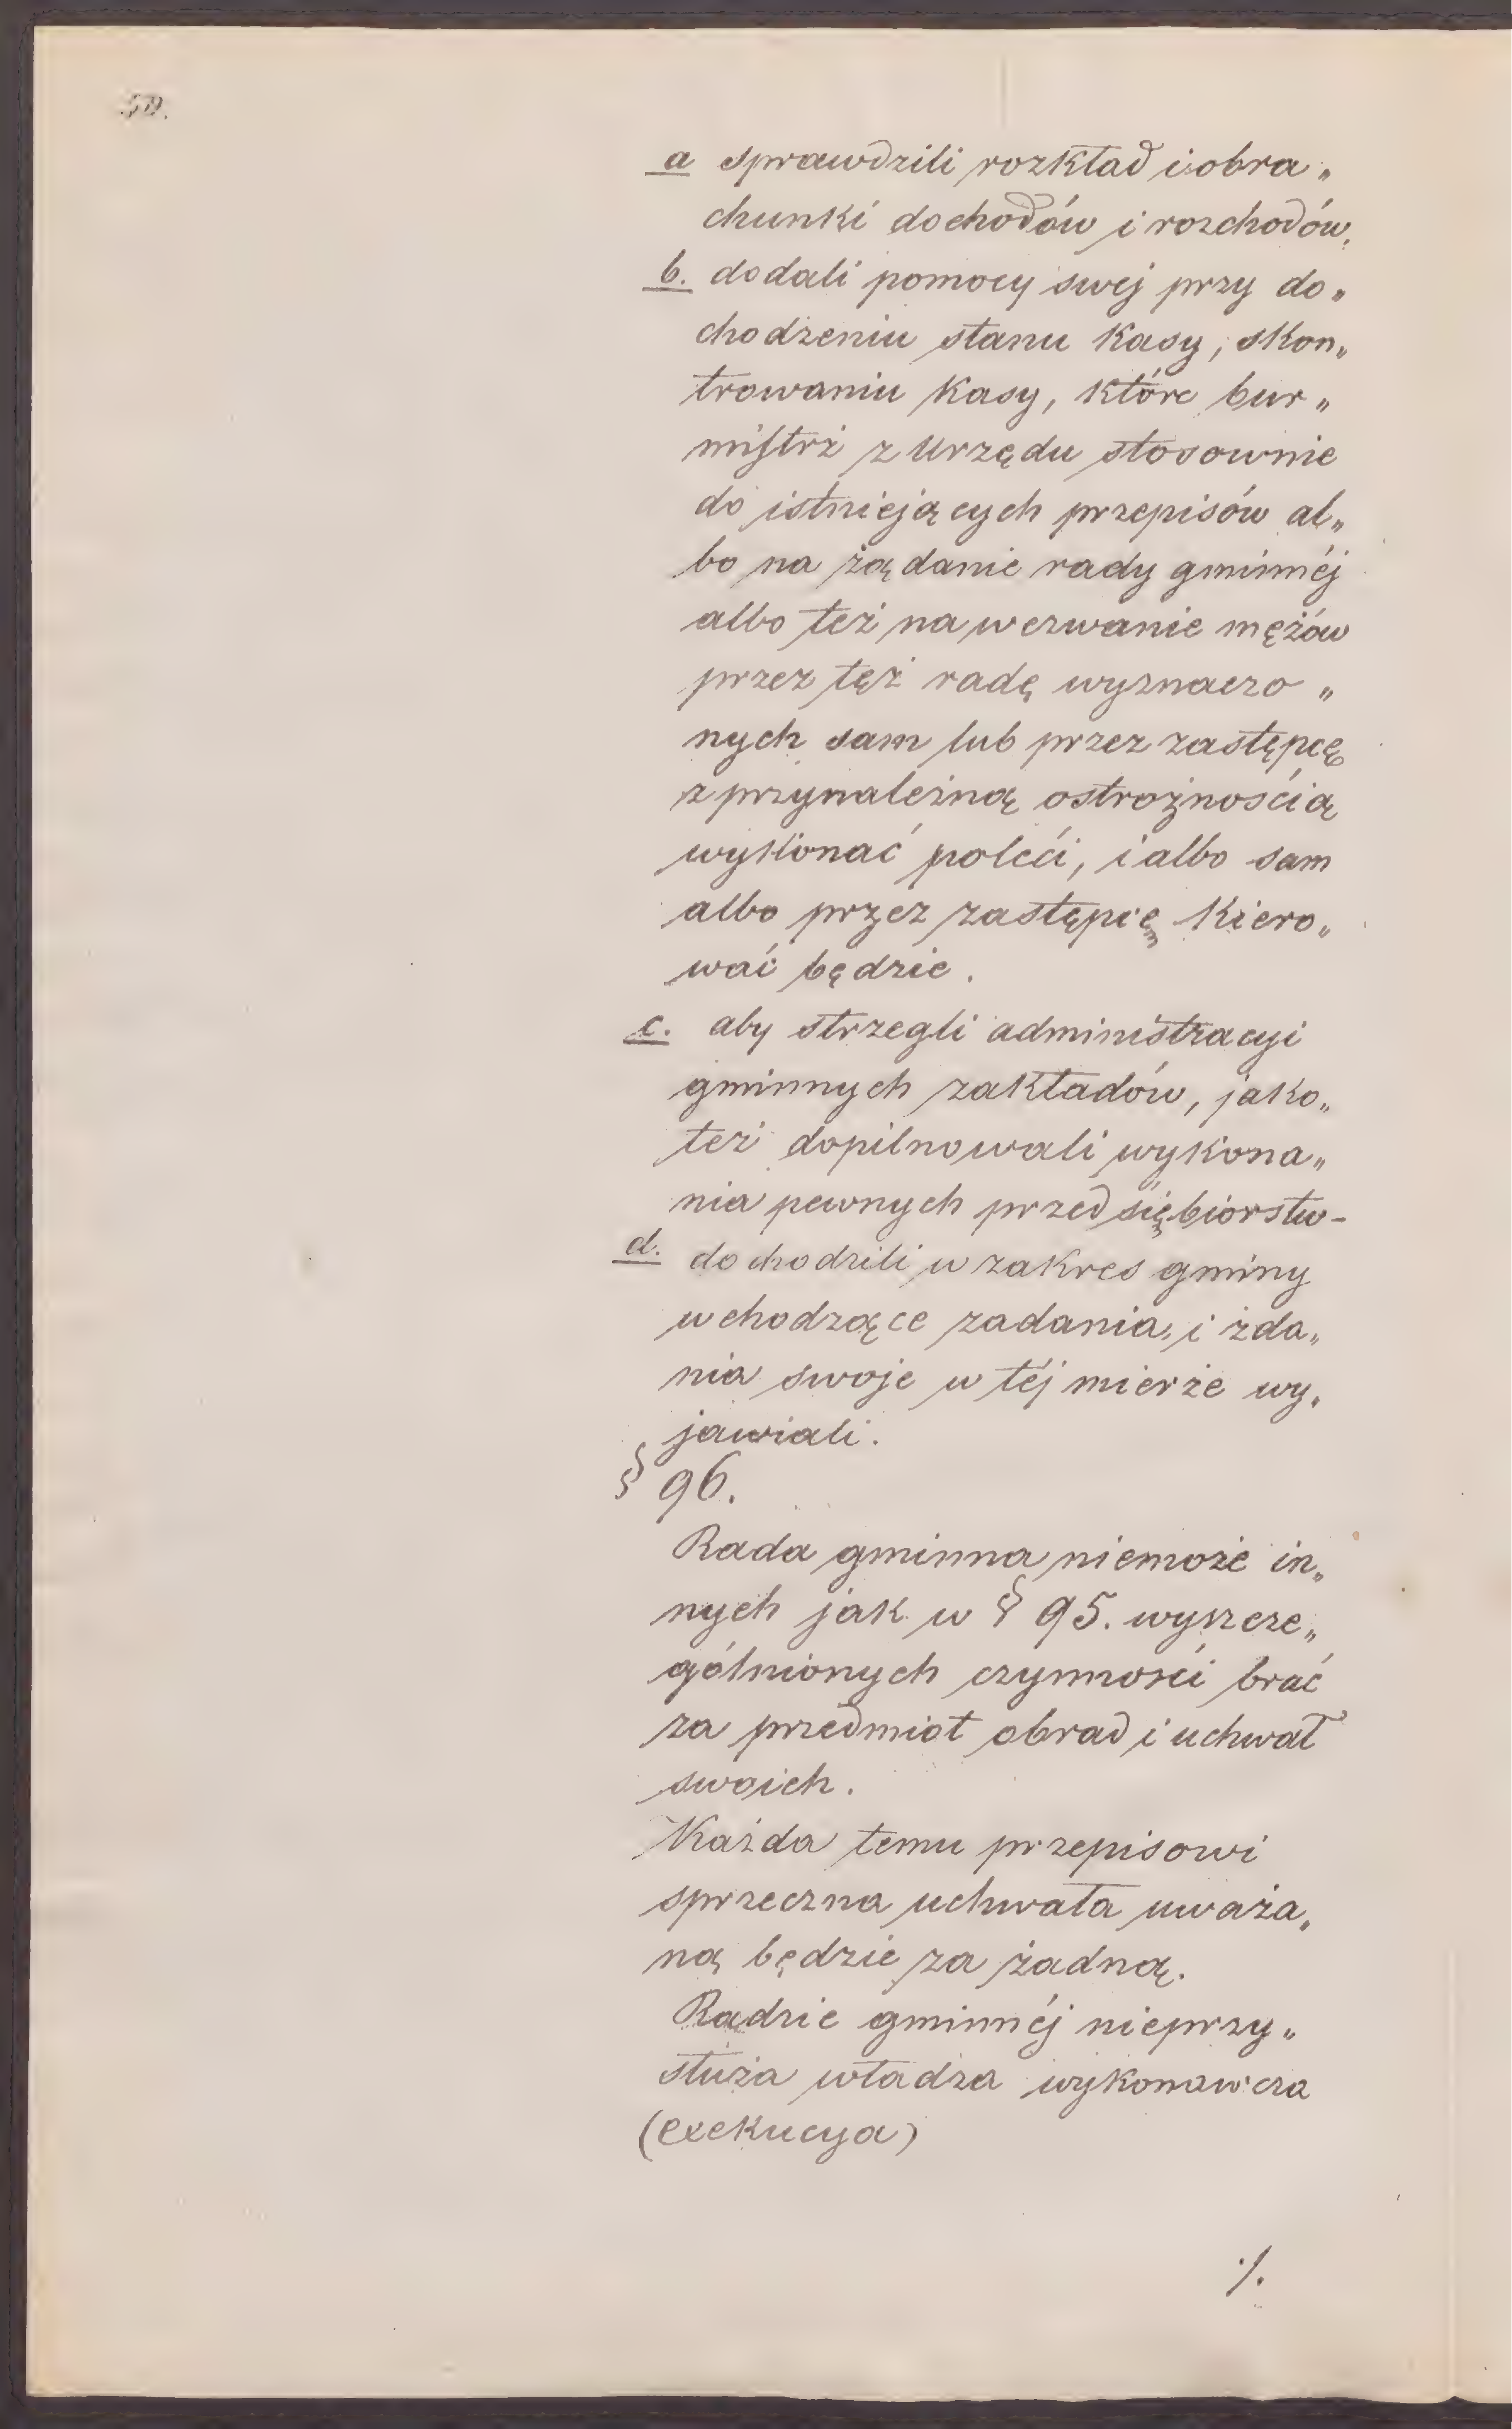 50.
a sprawdzili rozkład i obra„
chunki dochodów i rozchodów,
b. dodali pomocy swej przy do„
chodzeniu stanu kasy, skon„
trowaniu kasy, które bur„
mistrz z urzędu stosownie
do istniejących przepisów al„
bo na żądanie rady gminnéj
albo też na wezwanie mężów
przez tęż radę wyznaczo„
nych sam lub przez zastępcę
z przynależną ostrożnością
wykonać poleci, i albo sam
albo przez zastępcę kiero„
wać będzie.
c. aby strzegli administracyi
gminnych zakładów, jako„
też dopilnowali wykona„
nia pewnych przedsiębiorstw-
d. dochodzili w zakres gminy
wchodzące zadania, i zda„
nia swoje w téj mierze wy„
jawiali.
§ 96.
Rada gminna niemoże in„
nych jak w § 95. wyszcze„
gólnionych czynności brać
za przedmiot obrad i uchwał
swoich.
Każda temu przepisowi
sprzeczna uchwała uważa„
ną będzie za żadną.
Radzie gminnéj nieprzy„
służa władza wykonawcza
(exekucya)
./.